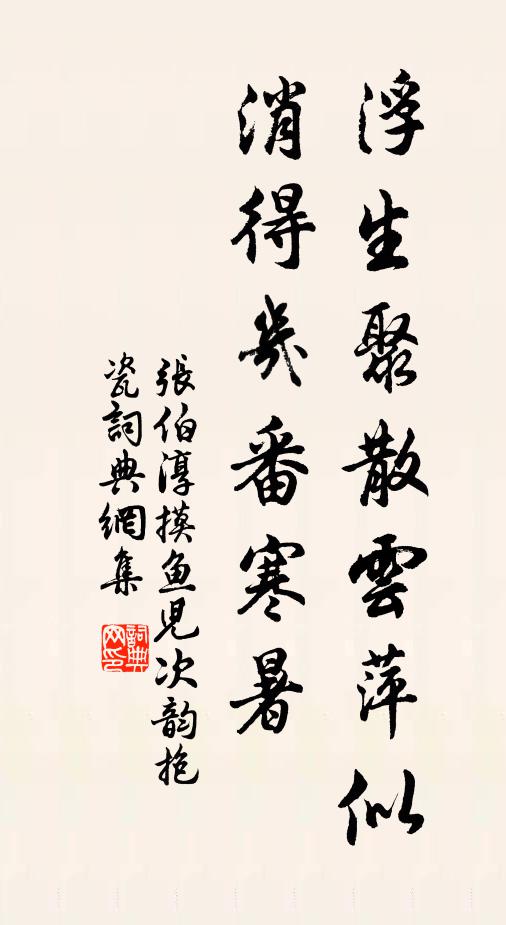 浮生聚散雲萍似
消得幾番寒暑
張伯淳摸鱼兒次韵抱
瓷詞典網集
詞典网印